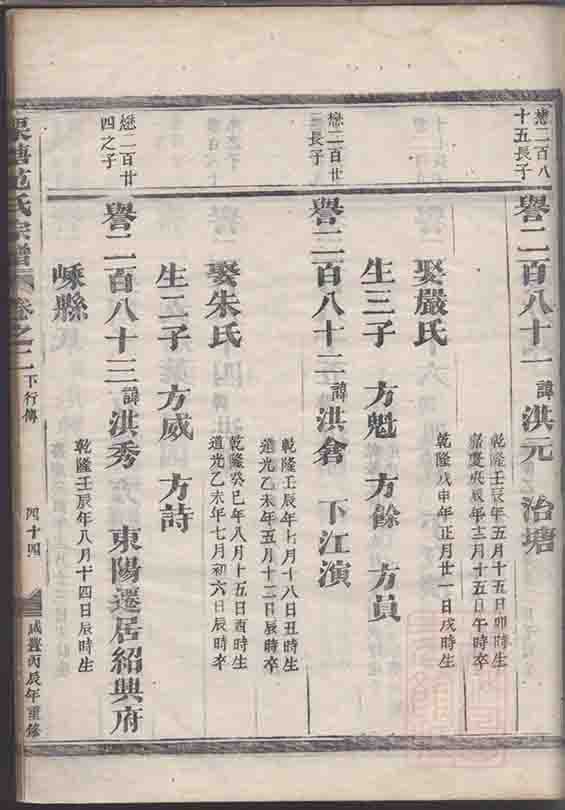 懋二百八
十五長子
譽二百八十一 諱 洪元 治塘
乾隆壬辰年五月十五日卯時生
嘉慶庚辰年十二月十五日午時卒
娶嚴氏
乾隆戊申年正月廿一日戌時生
生三子 方魁 方餘 方員
懋二百廿
三長子
譽二百八十二 諱 洪倉 下江演
乾隆壬辰年七月十八日丑時生
道光乙未年五月十二日辰時卒
娶朱氏
乾隆癸巳年八月十五日酉時生
道光乙未年七月初六日辰時卒
生二子 方威 方詩
懋二百廿
四之子
譽二百八十三 諱 洪秀 東陽遷居紹興府
嵊縣
乾隆壬辰年八月十四日辰時生
范氏宗譜 卷之二 下行傳 四十四 咸豐丙辰年重修